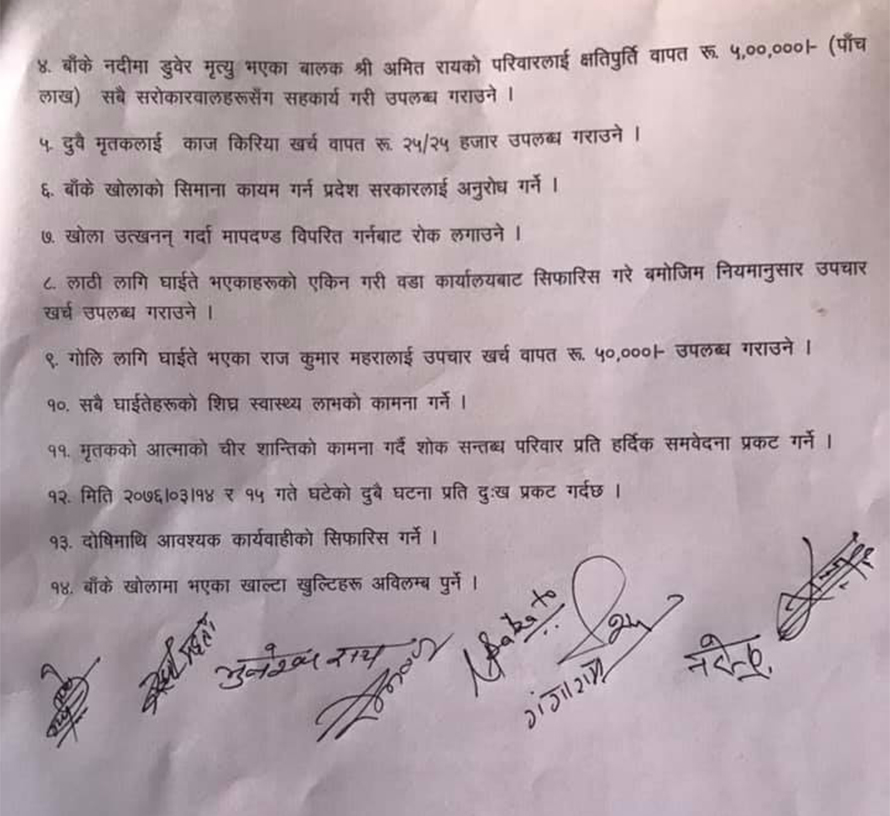 ४. बाँके नदीमा डुवेर मृत्यु भएका बालक श्री अमित रायको परिवारलाई क्षतिपुर्ति वापत रू. ५,००,०००।- (पाँच
लाख) सबै सरोकारवालहरूसँग सहकार्य गरी उपलब्ध गराउने ।
५. दुवै मृतकलाई काज किरिया खर्च वापत रू. २५/२५ हजार उपलब्ध गराउने ।
६. बाँके खोलाको सिमाना कायम गर्न प्रदेश सरकारलाई अनुरोध गर्ने ।
७. खोला उत्खनन् गर्दा मापदण्ड विपरित गर्नबाट रोक लगाउने ।
८. लाठी लागि घाईते भएकाहरूको एकिन गरी वडा कार्यालयबाट सिफारिस गरे बमोजिम नियमानुसार उपचार
खर्च उपलब्ध गराउने ।
९. गोलि लागि घाईते भएका राज कुमार महरालाई उपचार खर्च वापत रू. ५०,०००।- उपलब्ध गराउने ।
१०. सबै घाईतेहरूको शिघ्र स्वास्थ्य लाभको कामना गर्ने ।
११. मृतकको आत्माको चीर शान्तिको कामना गर्दै शोक सन्तब्ध परिवार प्रति हर्दिक समवेदना प्रकट गर्ने ।
१२. मिति २०७६।०३।१४ र १५ गते घटेको दुबै घटना प्रति दुःख प्रकट गर्दछ ।
१३. दोषिमाथि आवश्यक कार्यवाहीको सिफारिस गर्ने ।
१४. बाँके खोलामा भएका खाल्टा खुल्टिहरू अविलम्ब पुर्ने ।
राय
गंगाराम